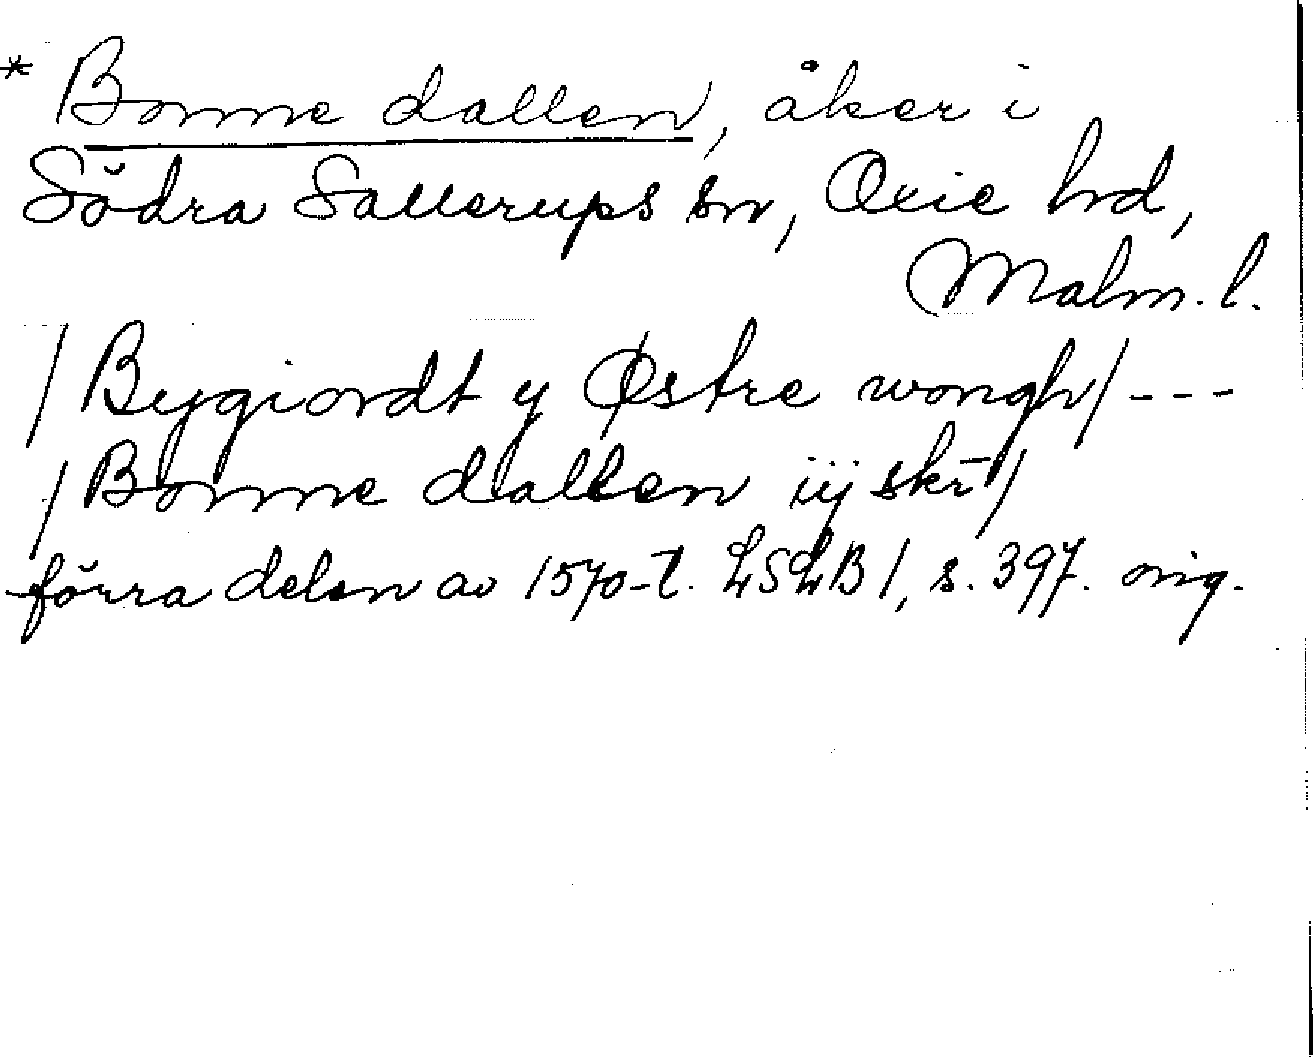 * Bonne dallen, åker i
Södra Sallerups sn, Oxie hd,
Malm. l.
/Bygiordt y Østre wongh/ ---
/Bonne dallen iij skr̄/
förra delen av 1570-t. LSLB 1, s. 397. orig.